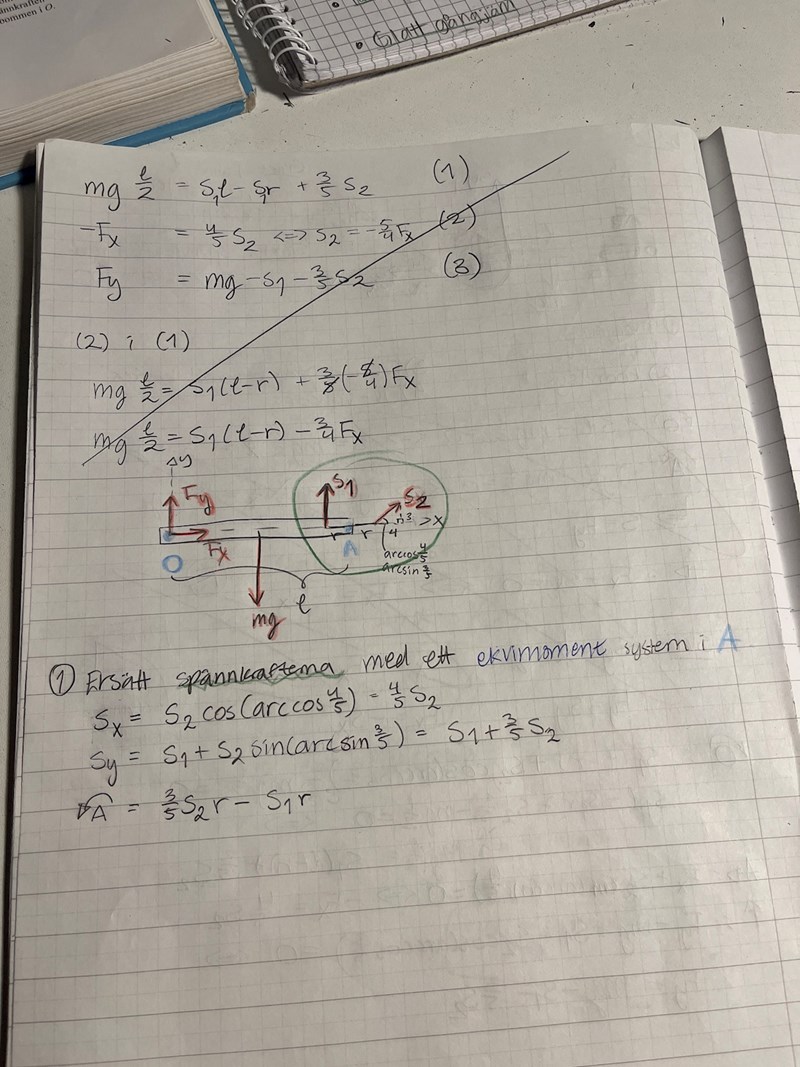 bommen i O.
• Glatt
mg l/2 = S₁l - S₁r + 3/5 S₂ (1)
-Fx = 4/5 S₂ <=> S₂ = -5/4 Fx (2)
Fy = mg - S₁ - 3/5 S₂ (3)
(2) i (1)
mg l/2 = S₁(l-r) + 3/5(-5/4)Fx
mg l/2 = S₁(l-r) - 3/4 Fx
y
Fy
S1
S2
3
x
Fx
r
r
4
O
A
arccos 4/5
arcsin 3/5
l
mg
① Ersätt spännkrafterna med ett ekvimoment system i A
Sx = S₂ cos(arccos 4/5) = 4/5 S₂
Sy = S₁ + S₂ sin(arcsin 3/5) = S₁ + 3/5 S₂
A = 3/5 S₂r - S₁r